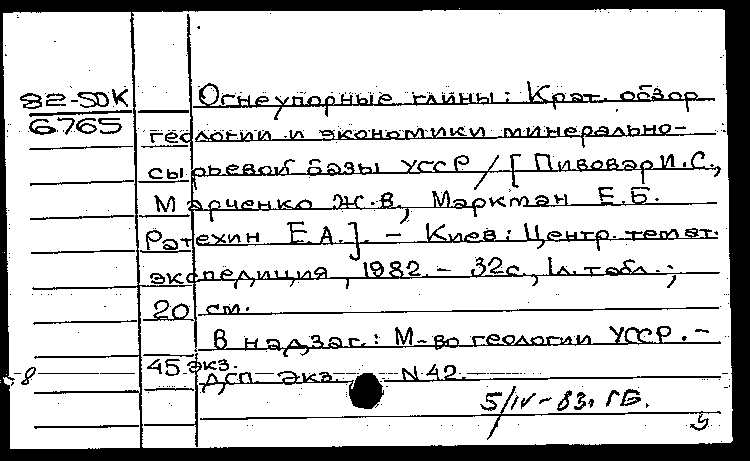 82-5DK
6765
Огнеупорные глины: Крат. обзор
геологии и экономики минерально-
сырьевой базы УССР / [Пивовар И.С.,
Марченко Ж.В., Марктан Е.Б.
Ратехин Е.А.]. – Киев: Центр. темат.
экспедиция, 1982. – 32с., 1л. табл.;
20 см.
В надзаг.: М-во геологии УССР. –
45 экз.
Дсп. Экз. N 42.
8
5/IV-83, ГБ.